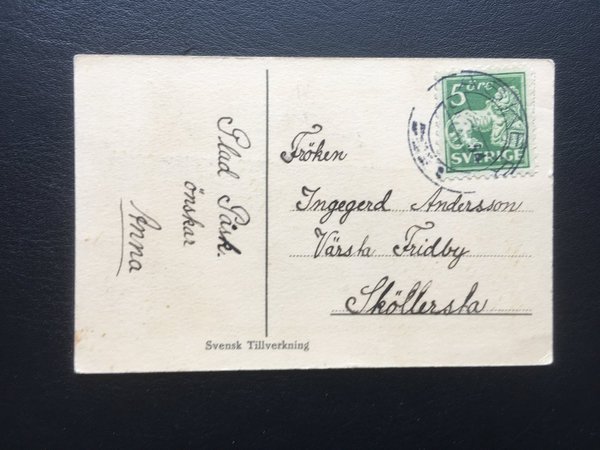 Glad Påsk.
önskar
Anna
5 öre
SVERIGE
Fröken
Ingegerd Andersson
Värsta Fridby
Sköllersta
Svensk Tillverkning